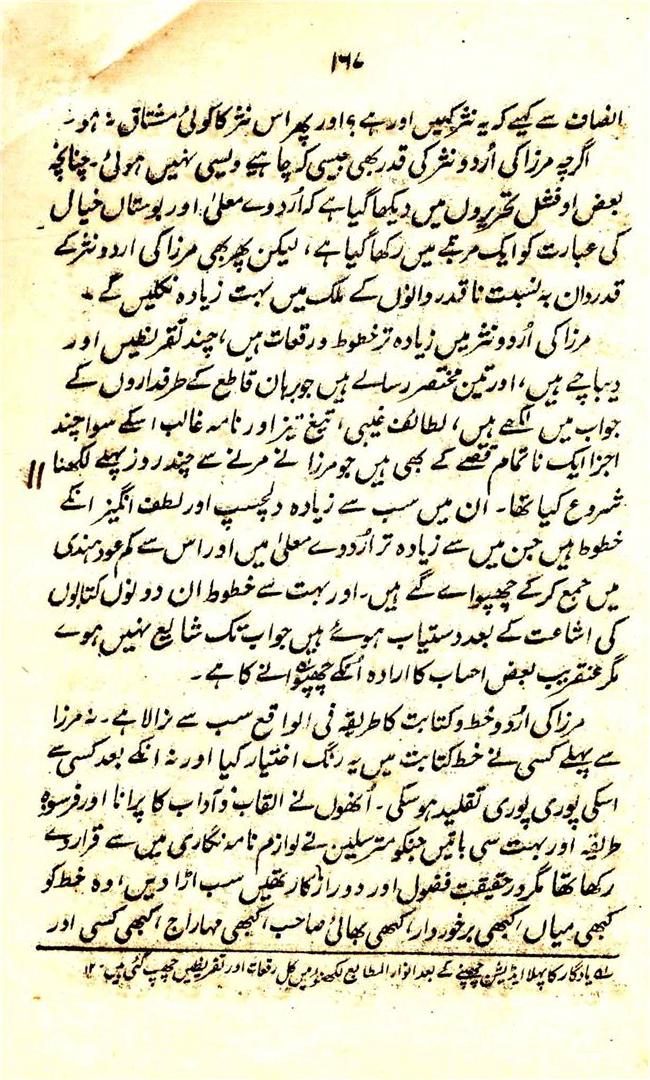 ۱۶۷
انصاف سے کہیے کہ یہ نثر کہیں اور ہے؟ اور پھر اس نثر کا کوئی مشتاق نہ ہو۔
اگرچہ مرزا کی اُردو نثر کی قدر بھی جیسی کہ چاہیے ویسی نہیں ہوئی۔ چنانچہ
بعض اوقشل تحریروں میں دیکھا گیا ہے کہ اُردوے معلیٰ، اور بوستان خیال
کی عبارت کو ایک مرتبے میں رکھا گیا ہے، لیکن پھر بھی مرزا کی اردو نثر کے
قدردان بہ نسبت ناقدر دانوں کے ملک میں بہت زیادہ نکلیں گے۔
مرزا کی اُردو نثر میں زیادہ تر خطوط و رقعات ہیں، چند تقریظیں اور
دیباچے ہیں، اور تین مختصر رسالے ہیں جو برہان قاطع کے طرفداروں کے
جواب میں لکھے ہیں، لطائف غیبی، تیغ تیز اور نامہ غالب اسکے سوا چند
اجزا ایک ناتمام قصے کے بھی ہیں جو مرزا نے مرنے سے چند روز پہلے لکھنا
شروع کیا تھا۔ ان میں سب سے زیادہ دلچسپ اور لطف انگیز انکے
خطوط ہیں جن میں سے زیادہ تر اُردوے معلیٰ میں اور اس سے کم عود ہندی
میں جمع کرکے چھپوائے گئے ہیں۔ اور بہت سے خطوط ان دونوں کتابوں
کی اشاعت کے بعد دستیاب ہوئے ہیں جو اب تک شایع نہیں ہوے
مگر عنقریب بعض احباب کا ارادہ اُنکے چھپوانے کا ہے۔
مرزا کی اردو خط و کتابت کا طریقہ فی الواقع سب سے نرالا ہے۔ نہ مرزا
سے پہلے کسی نے خط کتابت میں یہ رنگ اختیار کیا اور نہ انکے بعد کسی سے
اسکی پوری پوری تقلید ہو سکی۔ اُنھوں نے القاب و آداب کا پرانا اور فرسودہ
طریقہ اور بہت سی باتیں جنکو مترسلین نے لوازم نامہ نگاری میں سے قرار دے
رکھا تھا مگر درحقیقت فضول اور دور از کار تھیں سب اڑا دیں، وہ خط کو
کبھی میاں، کبھی برخوردار، کبھی بھائی صاحب، کبھی مہاراج، کبھی کسی اور
۵۱ یادگار کا پہلا ایڈیشن چھپنے کے بعد انوار المطابع لکھنؤ میں کل رقعات اور تقریظیں چھپ گئی ہیں۔۱۲